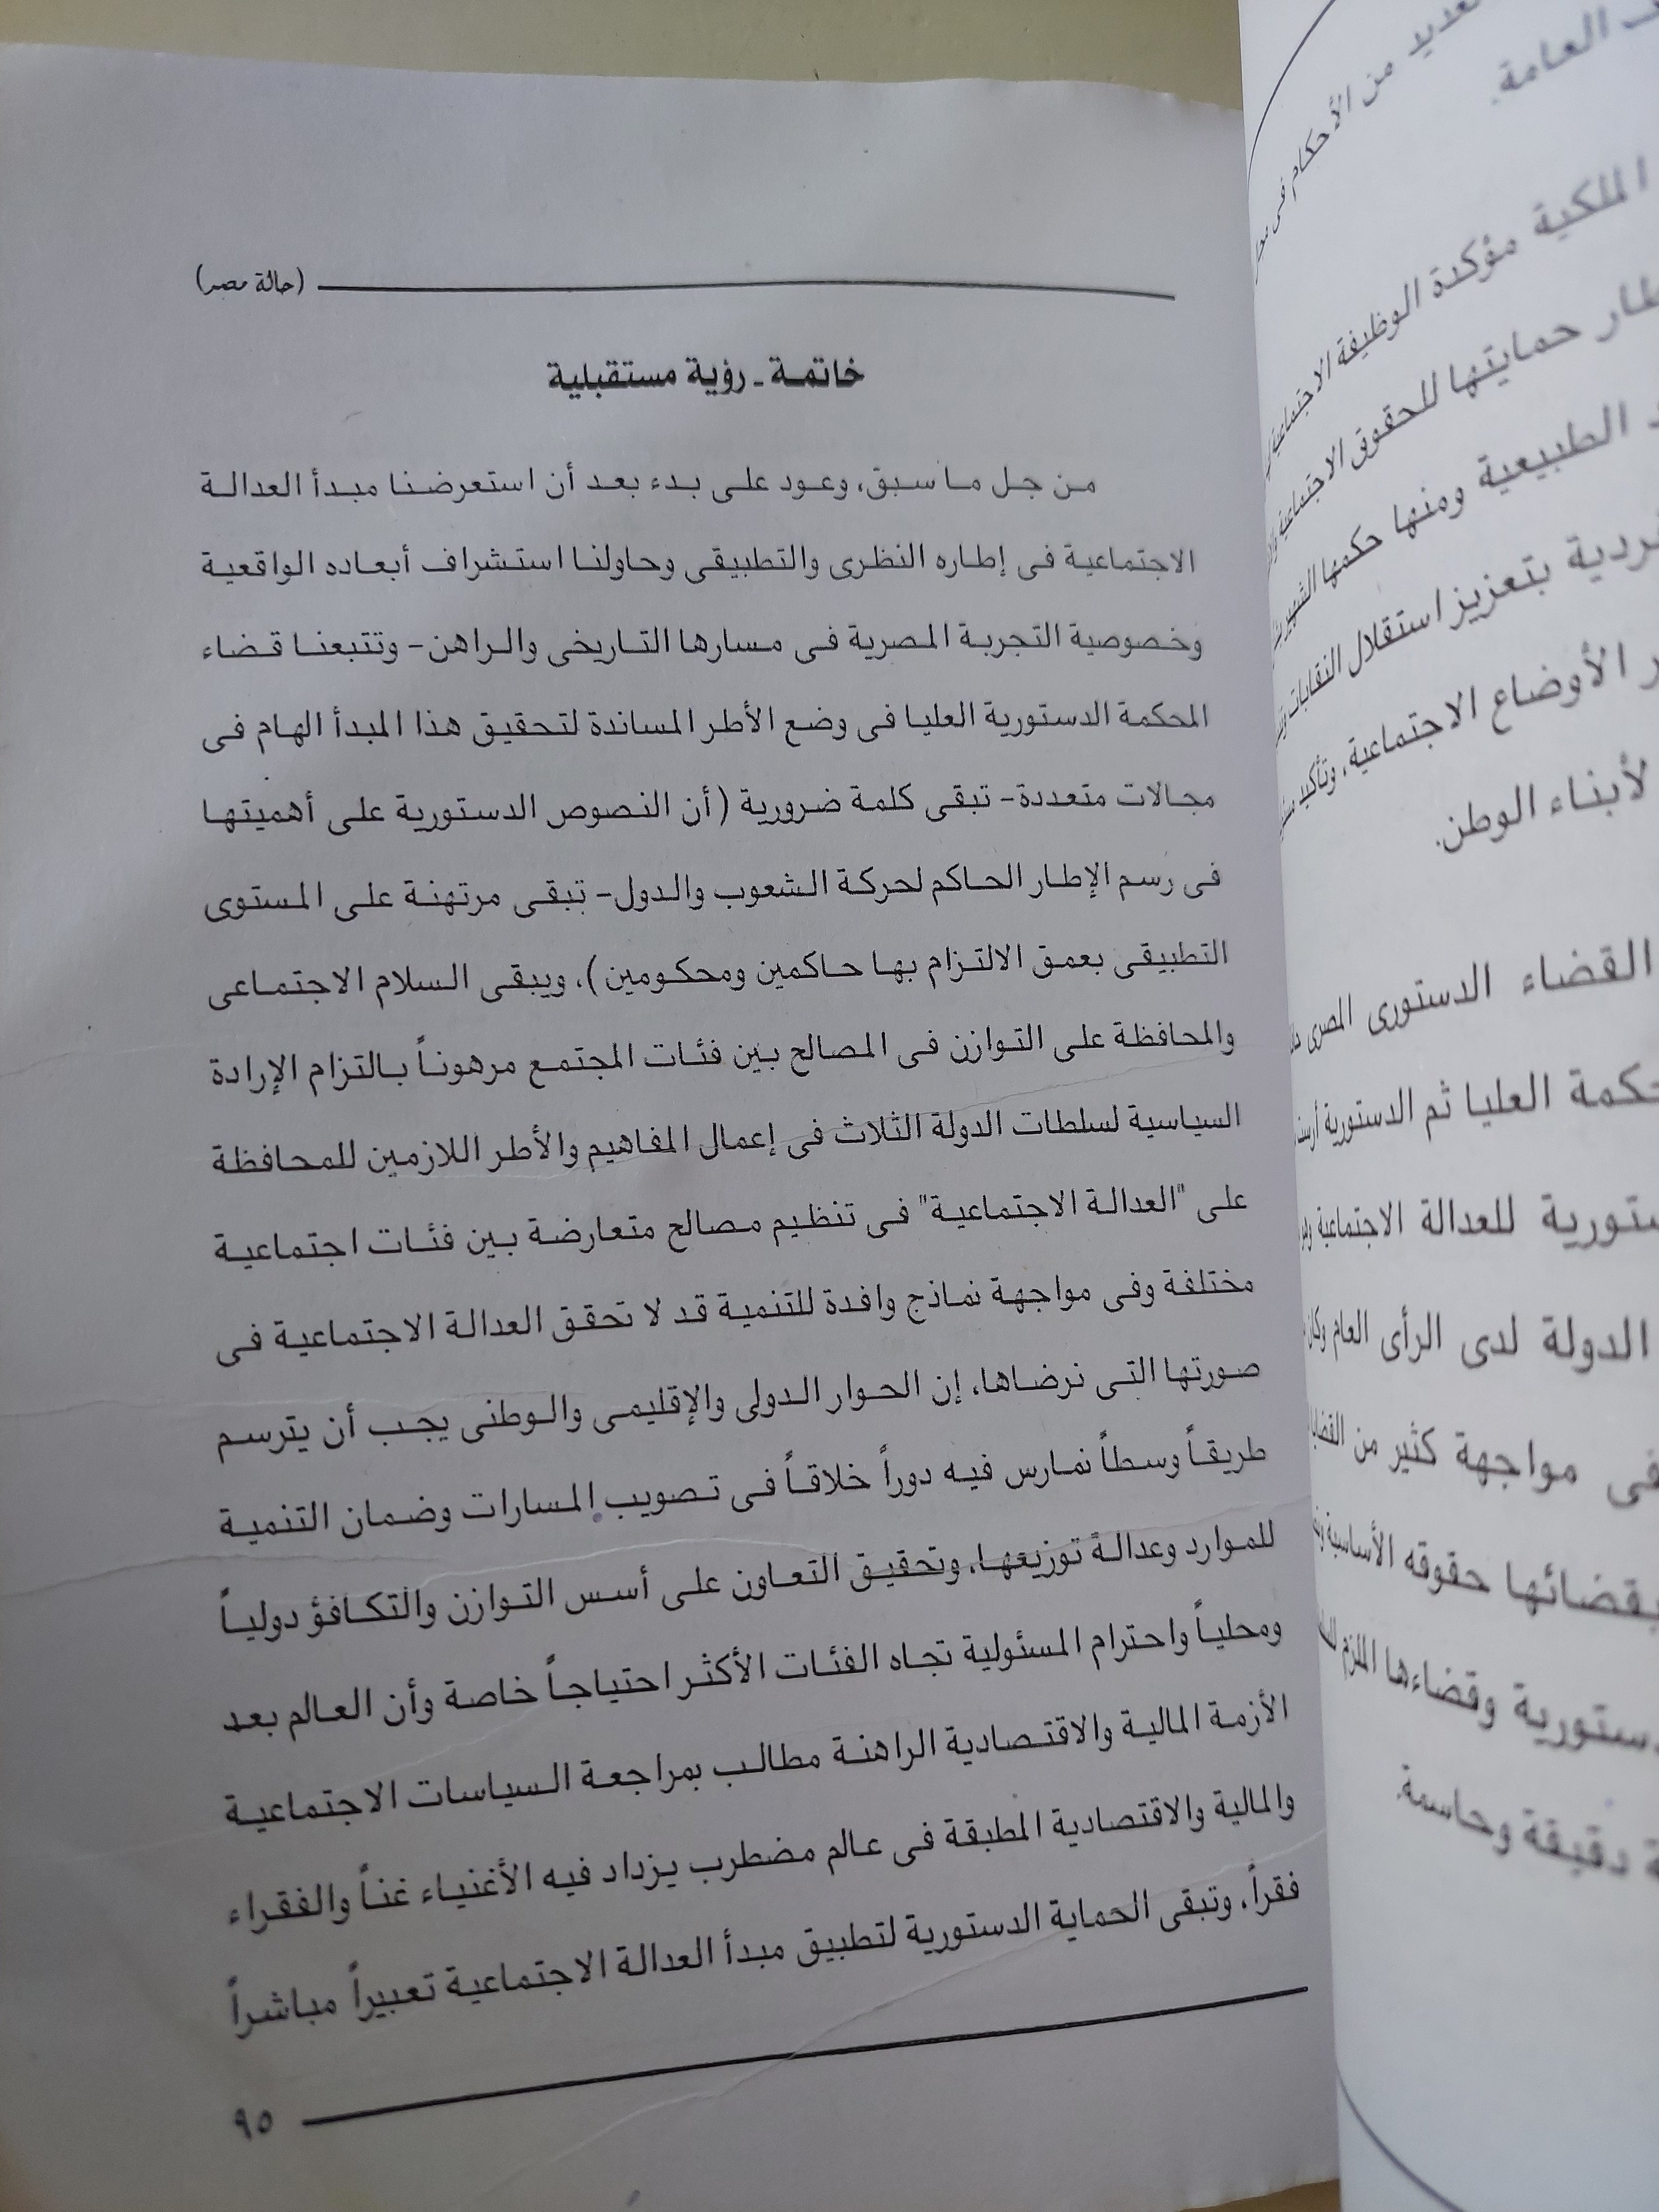 (حالة مصر)
خاتمة ـ رؤية مستقبلية
من جل ما سبق، وعود على بدء بعد أن استعرضنا مبدأ العدالة
الاجتماعية فى إطاره النظرى والتطبيقى وحاولنا استشراف أبعاده الواقعية
وخصوصية التجربة المصرية فى مسارها التاريخى والراهن- وتتبعنا قضاء
المحكمة الدستورية العليا فى وضع الأطر المساندة لتحقيق هذا المبدأ الهام فى
مجالات متعددة- تبقى كلمة ضرورية (أن النصوص الدستورية على أهميتها
فى رسم الإطار الحاكم لحركة الشعوب والدول- تبقى مرتهنة على المستوى
التطبيقى بعمق الالتزام بها حاكمين ومحكومين)، ويبقى السلام الاجتماعى
والمحافظة على التوازن فى المصالح بين فئات المجتمع مرهوناً بالتزام الإرادة
السياسية لسلطات الدولة الثلاث فى إعمال المفاهيم والأطر اللازمين للمحافظة
على "العدالة الاجتماعية" فى تنظيم مصالح متعارضة بين فئات اجتماعية
مختلفة وفى مواجهة نماذج وافدة للتنمية قد لا تحقق العدالة الاجتماعية فى
صورتها التى نرضاها، إن الحوار الدولى والإقليمى والوطنى يجب أن يترسم
طريقاً وسطاً نمارس فيه دوراً خلاقاً فى تصويب المسارات وضمان التنمية
للموارد وعدالة توزيعها، وتحقيق التعاون على أسس التوازن والتكافؤ دولياً
ومحلياً واحترام المسئولية تجاه الفئات الأكثر احتياجاً خاصة وأن العالم بعد
الأزمة المالية والاقتصادية الراهنة مطالب بمراجعة السياسات الاجتماعية
والمالية والاقتصادية المطبقة فى عالم مضطرب يزداد فيه الأغنياء غناً والفقراء
فقراً، وتبقى الحماية الدستورية لتطبيق مبدأ العدالة الاجتماعية تعبيراً مباشراً
٩٥
من الأحكام فى
العامة.
الملكية مؤكدة الوظيفة الاجتماعية
حمايتها للحقوق الاجتماعية
الطبيعية ومنها حكمها الشهير
بتعزيز استقلال النقابات
الأوضاع الاجتماعية، وتأكيد
لأبناء الوطن.
القضاء الدستورى المصرى
العليا ثم الدستورية
للعدالة الاجتماعية
الدولة لدى الرأى العام وكان
مواجهة كثير من القضايا
حقوقه الأساسية
وقضاءها الملزم
دقيقة وحاسمة.